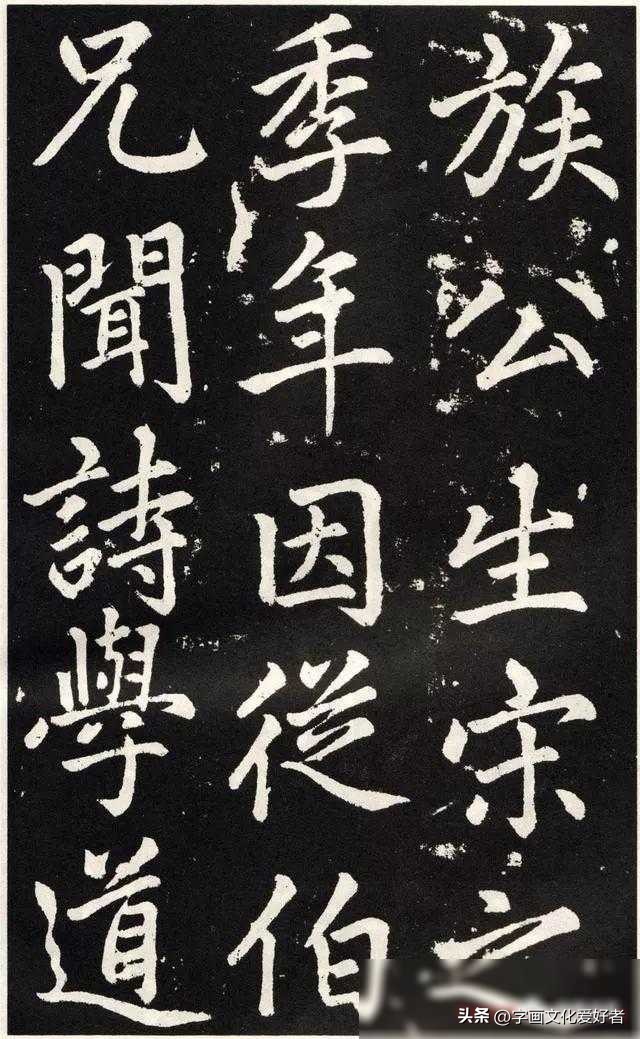 族公生宋之
季年因從伯
兄聞詩學道
头条 @字画文化爱好者